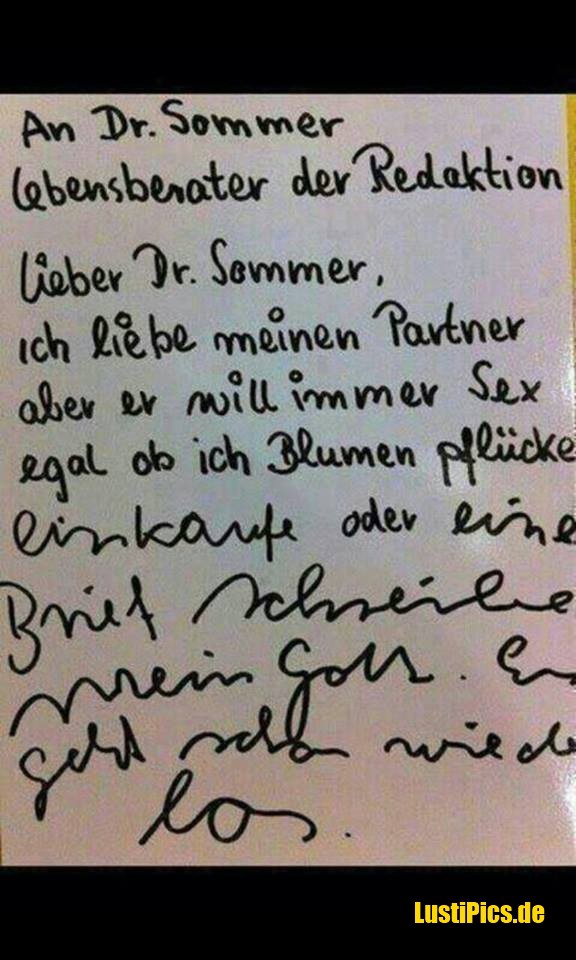 An Dr. Sommer
Lebensberater der Redaktion
Lieber Dr. Sommer,
ich liebe meinen Partner
aber er will immer Sex
egal ob ich Blumen pflücke
einkaufe oder eine
Brief schreibe
mein Gott. Es
geht schon wiede
los.
LustiPics.de